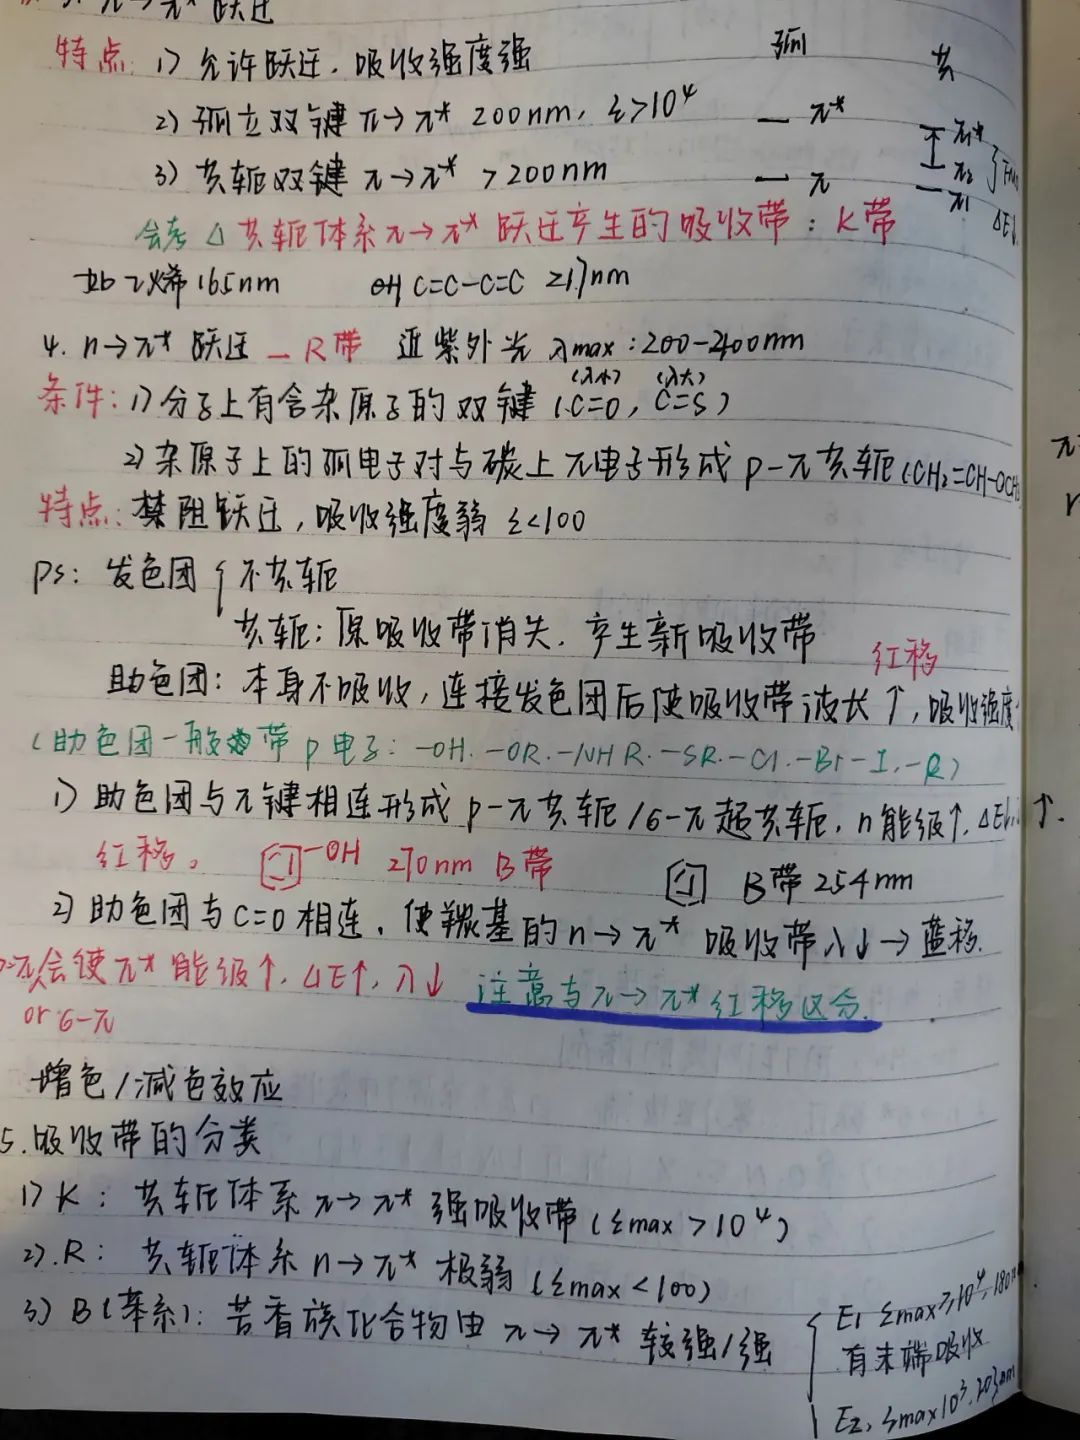 3. π→π* 跃迁
特点: 1) 允许跃迁. 吸收强度强
孤 共
2) 孤立双键 π→π* 200nm, ε>10⁴
— π* π₁*
3) 共轭双键 π→π* >200nm
— π π₂ π₁
会考 △ 共轭体系π→π* 跃迁产生的吸收带: K带
ΔE↓
如乙烯165nm 时 C=C-C=C 217nm
4. n→π* 跃迁 — R带 近紫外光 λmax:200-400nm
(λ小) (λ大)
条件: 1) 分子上有含杂原子的双键 (C=O, C=S)
2) 杂原子上的孤电子对与碳上π电子形成 p-π共轭(CH₂=CH-OCH₃
特点: 禁阻跃迁, 吸收强度弱 ε<100
ps: 发色团 { 不共轭
共轭: 原吸收带消失. 产生新吸收带
红移
助色团: 本身不吸收, 连接发色团后使吸收带波长↑, 吸收强度↑
(助色团一般带p电子: -OH. -OR. -NHR. -SR. -Cl. -Br -I. -R)
1) 助色团与π键相连形成 p-π共轭/6-π超共轭. n能级↑. ΔE↓. λ↑.
红移。 -OH 270nm B带 B带 254nm
2) 助色团与C=O相连. 使羰基的n→π* 吸收带λ↓→蓝移.
p-π会使π*能级↑. ΔE↑. λ↓ 注意与π→π*红移区分.
or 6-π
增色/减色效应
5. 吸收带的分类
1) K: 共轭体系 π→π* 强吸收带 (εmax >10⁴)
2). R: 共轭体系 n→π* 极弱 (εmax <100)
3) B(苯系): 芳香族化合物由 π→π* 较强/强
{ E₁ εmax≥10⁴, 180n
有末端吸收
E₂, εmax10³, 203nm